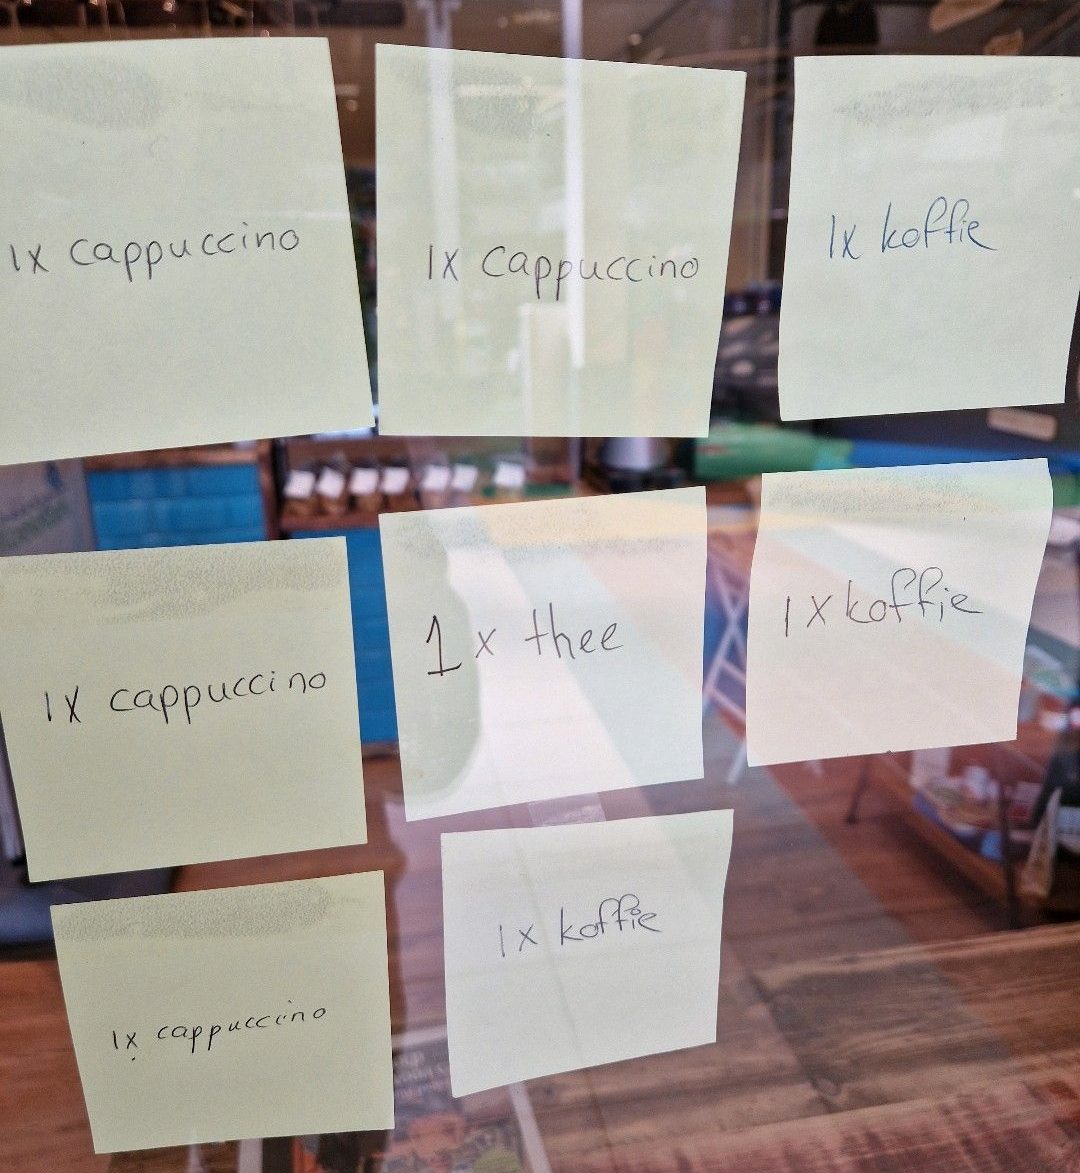 1x cappuccino
1x cappuccino
1x koffie
1x cappuccino
1 x thee
1x koffie
1x cappuccino
1x koffie